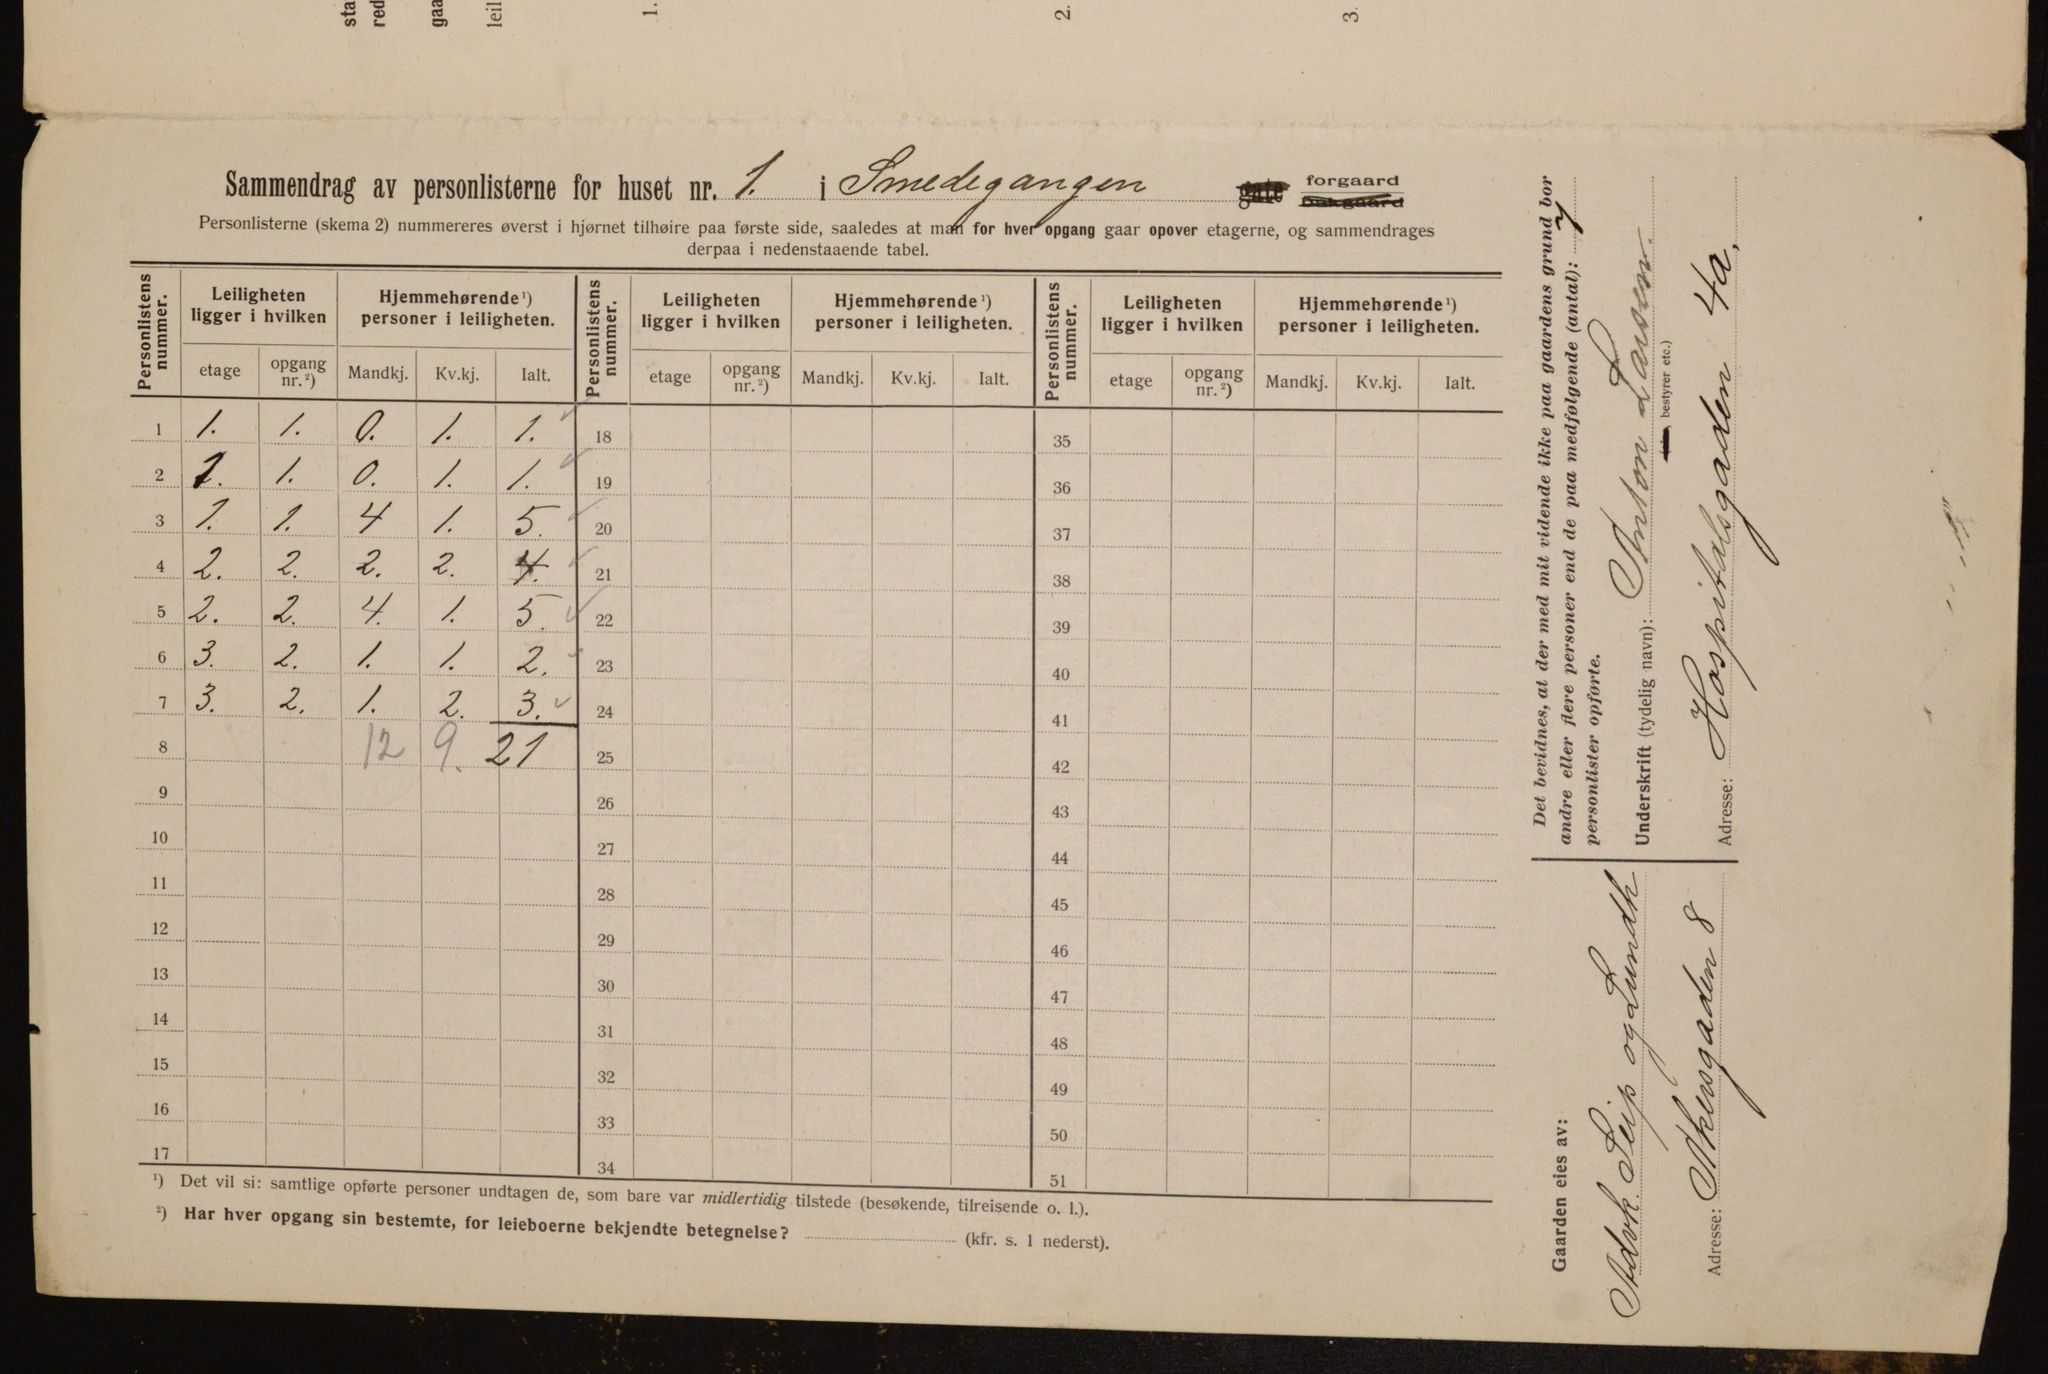 sta
red
gaa
leil
1.
2.
3.
Sammendrag av personlisterne for huset nr. 1. i Smedegangen gate forgaard bakgaard
Personlisterne (skema 2) nummereres øverst i hjørnet tilhøire paa første side, saaledes at man for hver opgang gaar opover etagerne, og sammendrages
derpaa i nedenstaaende tabel.
Personlistens nummer. Leiligheten ligger i hvilken Hjemmehørende¹) personer i leiligheten. Personlistens nummer. Leiligheten ligger i hvilken Hjemmehørende¹) personer i leiligheten. Personlistens nummer. Leiligheten ligger i hvilken Hjemmehørende¹) personer i leiligheten.
etage opgang nr.²) Mandkj. Kv.kj. Ialt. etage opgang nr.²) Mandkj. Kv.kj. Ialt. etage opgang nr.²) Mandkj. Kv.kj. Ialt.
1 1. 1. 0. 1. 1. ✓ 18 35
2 1. 1. 0. 1. 1. ✓ 19 36
3 1. 1. 4 1. 5. ✓ 20 37
4 2. 2. 2. 2. 4. ✓ 21 38
5 2. 2. 4. 1. 5. ✓ 22 39
6 3. 2. 1. 1. 2. ✓ 23 40
7 3. 2. 1. 2. 3. ✓ 24 41
8 12 9. 21 25 42
9 26 43
10 27 44
11 28 45
12 29 46
13 30 47
14 31 48
15 32 49
16 33 50
17 34 51
¹) Det vil si: samtlige opførte personer undtagen de, som bare var midlertidig tilstede (besøkende, tilreisende o. l.).
²) Har hver opgang sin bestemte, for leieboerne bekjendte betegnelse? (kfr. s. 1 nederst).
Det bevidnes, at der med mit vidende ikke paa gaardens grund bor
andre eller flere personer end de paa medfølgende (antal): 7
personlister opførte.
Underskrift (tydelig navn): Anton Larsen.
, bestyrer etc.)
Adresse: Hospitalsgaden 4a,
Gaarden eies av:
Advk. Seip og Lundh
Adresse: Akersgaden 8